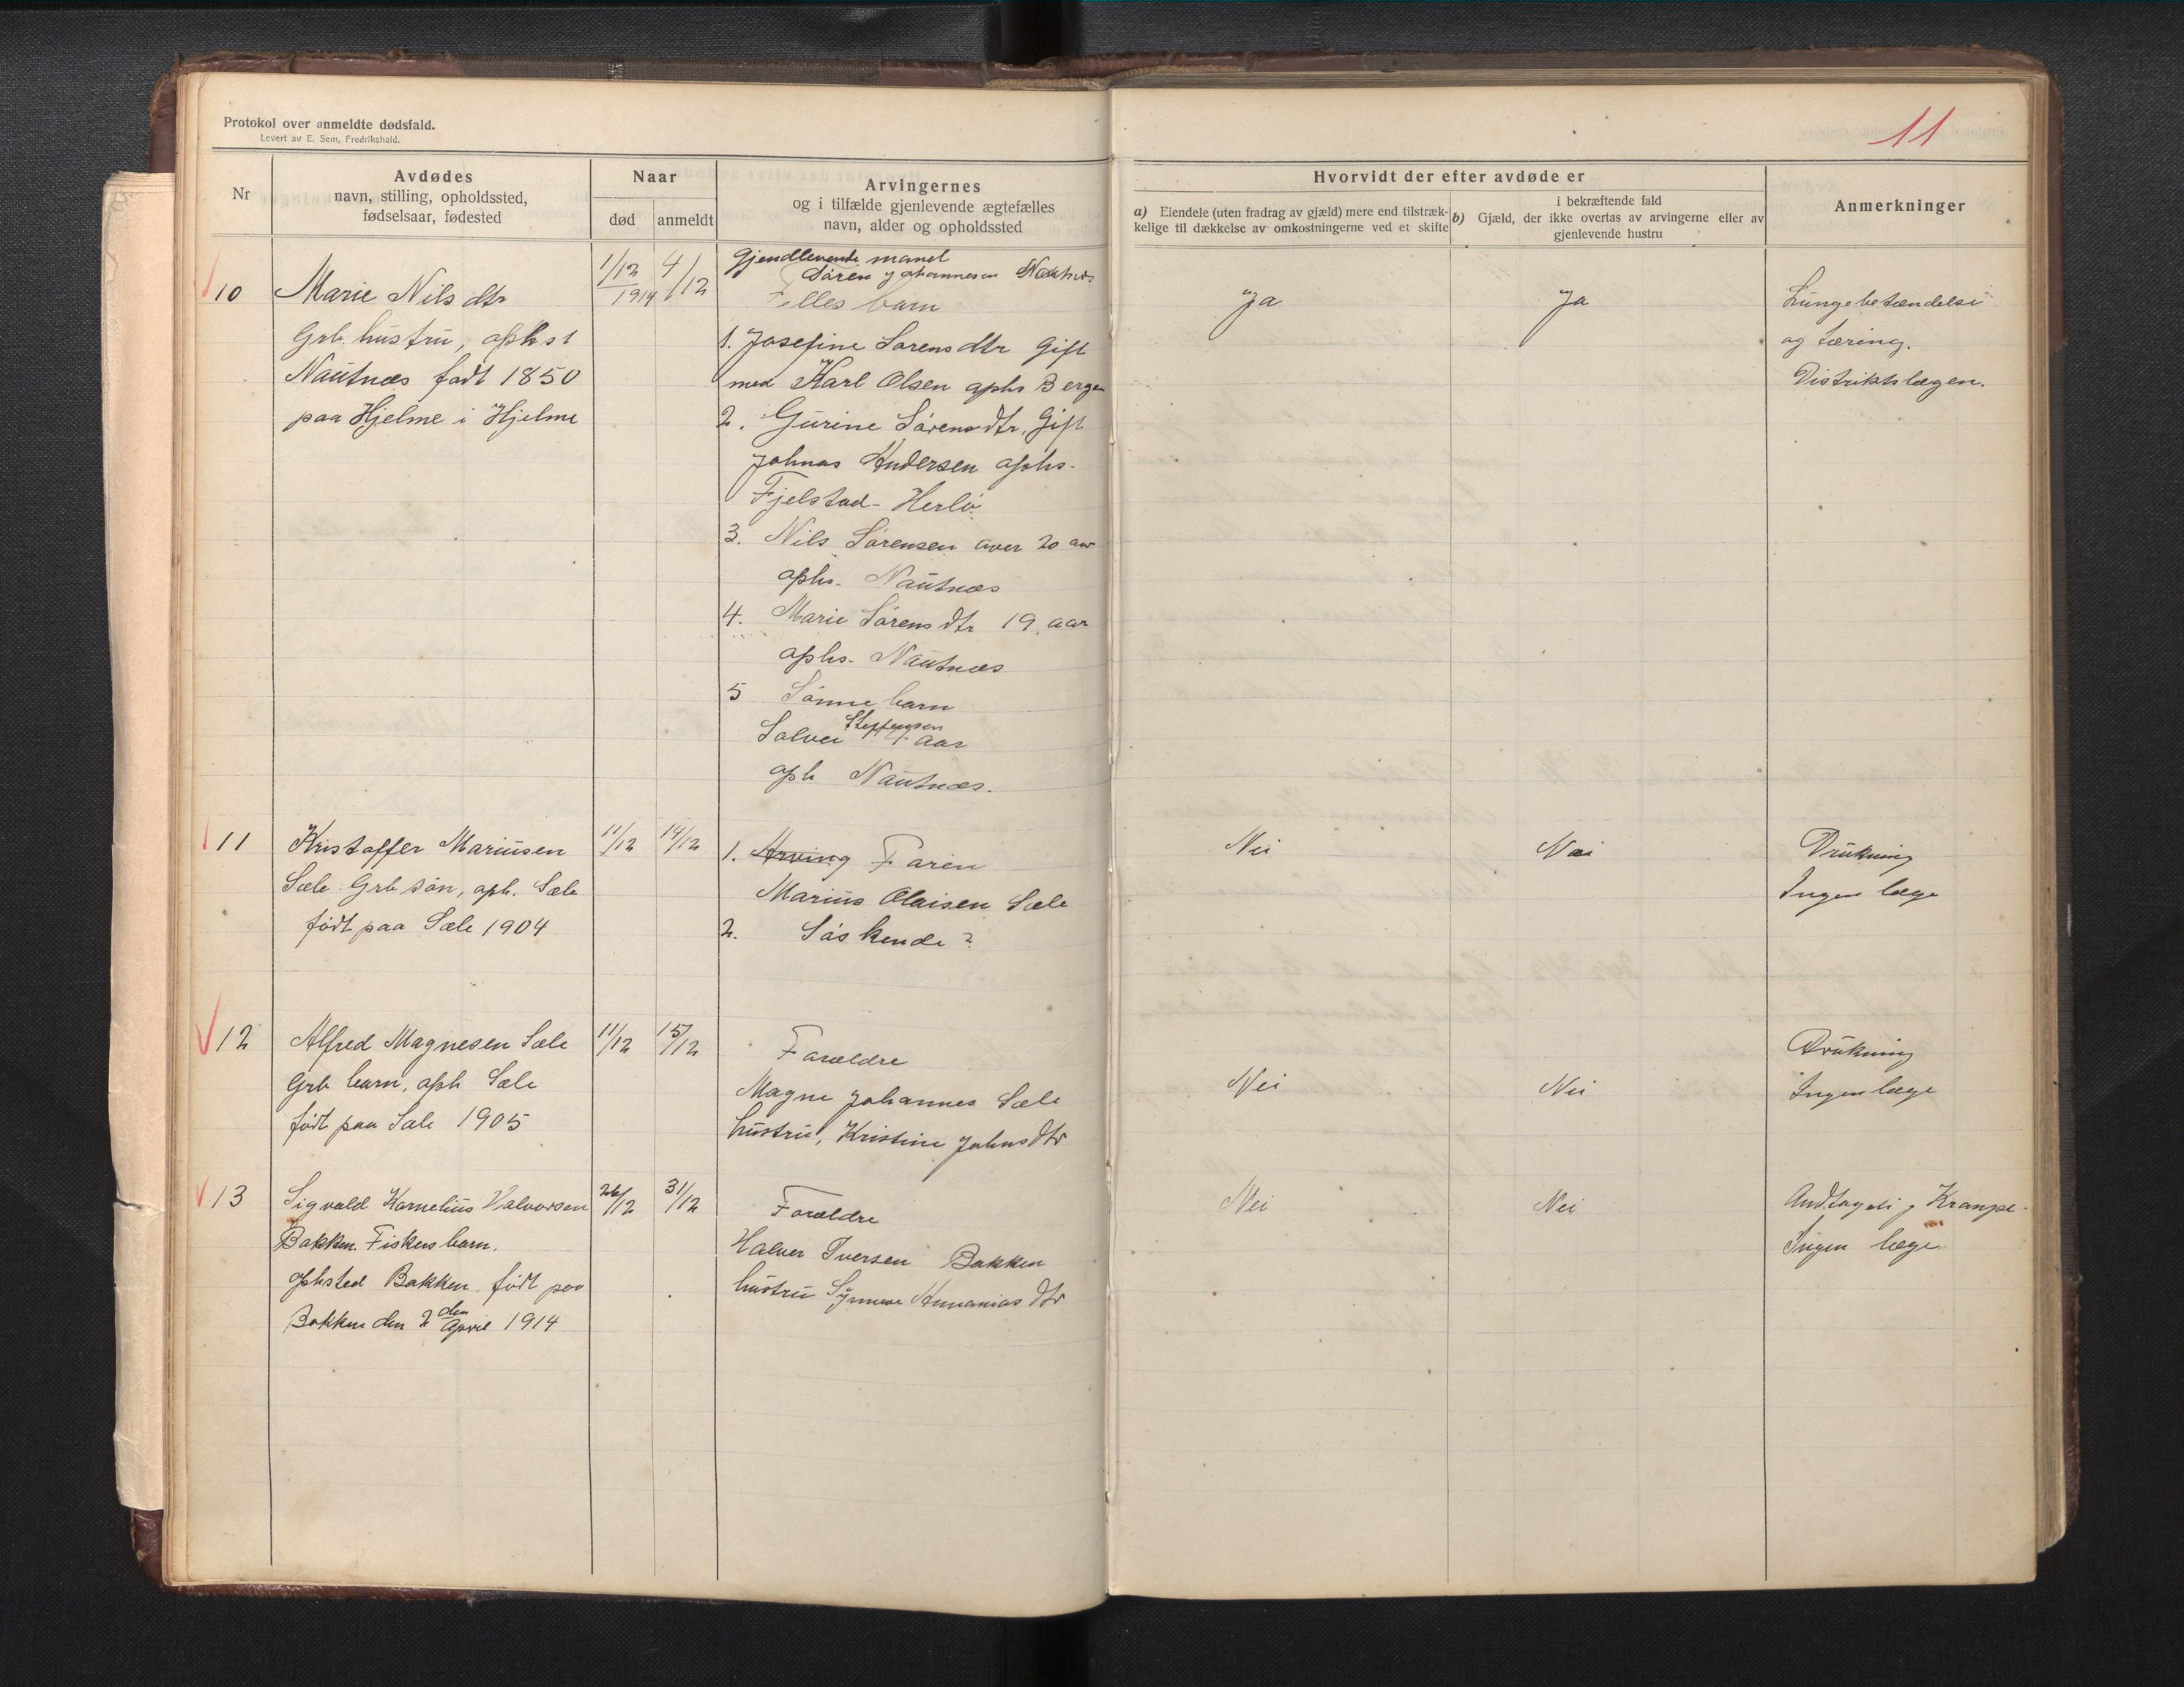 Protokol over anmeldte dødsfald.
Levert av E. Sem, Fredrikshald.
11
Nr
Avdødes
navn, stilling, opholdssted,
fødselsaar, fødested
Naar
død
anmeldt
Arvingernes
og i tilfælde gjenlevende ægtefælles
navn, alder og opholdssted
Hvorvidt der efter avdøde er
a) Eiendele (uten fradrag av gjæld) mere end tilstræk-
kelige til dækkelse av omkostningerne ved et skifte
i bekræftende fald
b) Gjæld, der ikke overtas av arvingerne eller av
gjenlevende hustru
Anmerkninger
10
Marie Nils dtr
Grb. hustru, ophst
Nautnæs født 1850
paa Hjelme i Hjelme
1/12 1914
4/12
Gjendlevende mand
Søren Johannesen Nautnæs
Felles barn
1. Josefine Sørens dtr Gift
med Karl Olsen ophs Bergen
2. Gurine Sørens dtr. Gift
Johnas Andersen ophs.
Fjelstad - Herlø
3. Nils Sørensen over 20 aar
ophs. Nautnæs
4. Marie Sørens dtr 19 aar
ophs. Nautnæs
5 Sønne barn
Steffensen
Salvei aar
oph Nautnæs.
Ja
Ja
Lungebetændelse
og tæring.
Distriktslægen.
11
Kristoffer Mariusen
Sæle Grb søn, oph. Sæle
født paa Sæle 1904
11/12
14/12
1. Arving Faren
Marius Olaisen Sæle
2. Søskende ?
Nei
Nei
Drukning
Ingen læge
12
Alfred Magnesen Sæle
Grb barn, oph Sæle
født paa Sæle 1905
11/12
15/12
Forældre
Magne Johannes Sæle
hustru, Kristine Johns dtr
Nei
Nei
Drukning
Ingen læge
13
Sigvald Kornelius Halvorsen
Bakken. Fiskers barn.
Ophsted Bakken. født paa
Bakken den 2 den April 1914
26/12
31/12
Forældre
Halvor Iversen Bakken
hustru Synneve Annanias dtr
Nei
Nei
Krampe.
Ingen læge